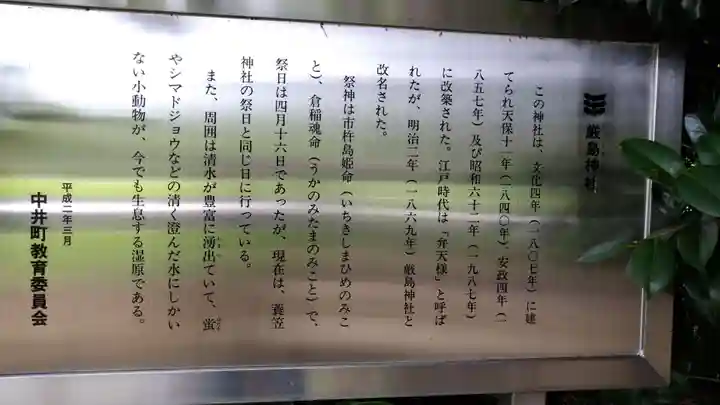 厳島神社
この神社は、文化四年（一八〇七年）に建
てられ天保十一年（一八四〇年）、安政四年（一
八五七年）及び昭和六十二年（一九八七年）
に改築された。江戸時代は「弁天様」と呼ば
れたが、明治二年（一八六九年）厳島神社と
改名された。
祭神は市杵島姫命（いちきしまひめのみこ
と）、倉稲魂命（うかのみたまのみこと）で、
祭日は四月十六日であったが、現在は、蓑笠
神社の祭日と同じ日に行っている。
また、周囲は清水が豊富に湧出ていて、蛍
やシマドジョウなどの清く澄んだ水にしかい
ない小動物が、今でも生息する湿原である。
平成二年三月
中井町教育委員会